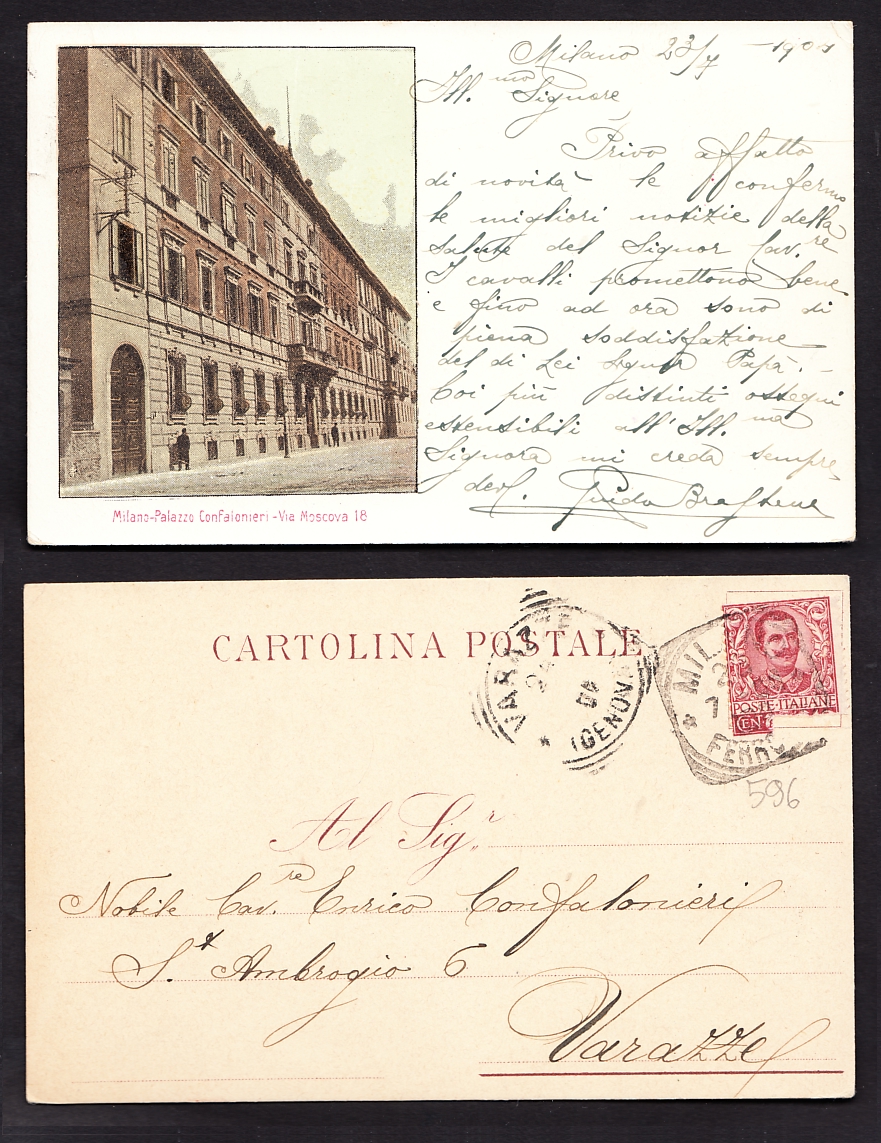 Milano 23/7 -1901
Ill.mo Signore
Privo affatto
di novità le confermo
le migliori notizie della
salute del Signor Cav.re
I cavalli promettono bene
e fino ad ora sono di
piena soddisfazione
del di Lei Signor Papà. -
Coi più distinti ossequi
estensibili all'Ill.ma
Signora mi creda sempre
dev. Guido
Milano-Palazzo Confalonieri-Via Moscova 18
CARTOLINA POSTALE
VARAZZE
24
(GENOVA)
MIL
2
7
FERR
POSTE·ITALIANE
CEN
596
Al Sig.r
Nobile Cav.re Enrico Confalonieri
S.t Ambrogio 6
Varazze